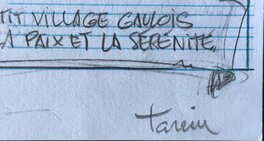 TIT VILLAGE GAULOIS
LA PAIX ET LA SÉRÉNITÉ.